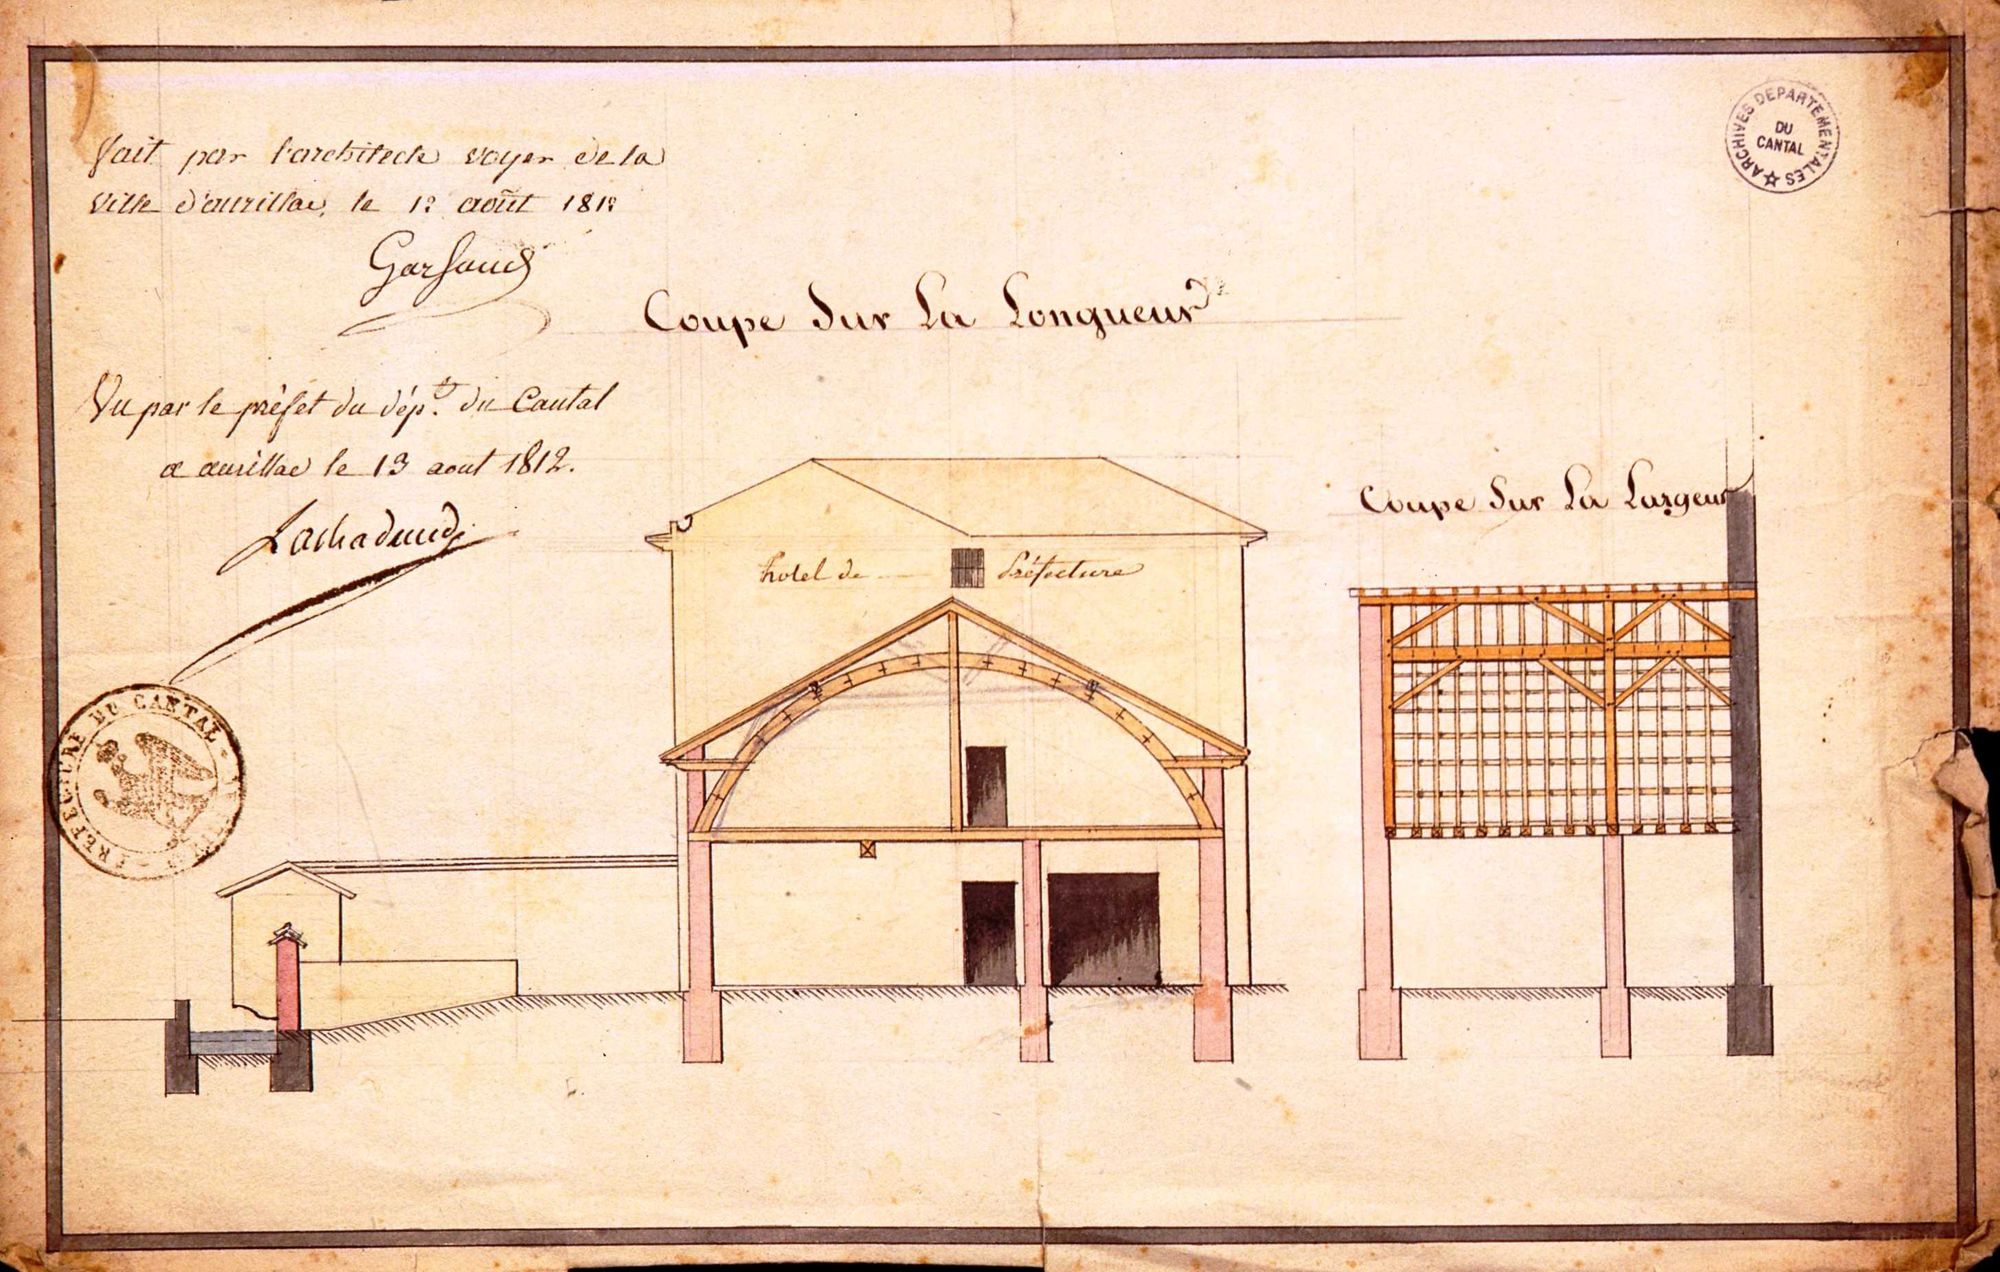 fait par l'architecte voyer de la
ville d'aurillac, le 12 août 1812
Garfaud
Vu par le préfet du dép.t du Cantal
a aurillac le 13 aout 1812.
Lachadenede
Coupe Sur La Longueur
Coupe Sur La Largeur
hotel de Préfecture
ARCHIVES DEPARTEMENTALES
DU
CANTAL
PREFECTURE DU CANTAL